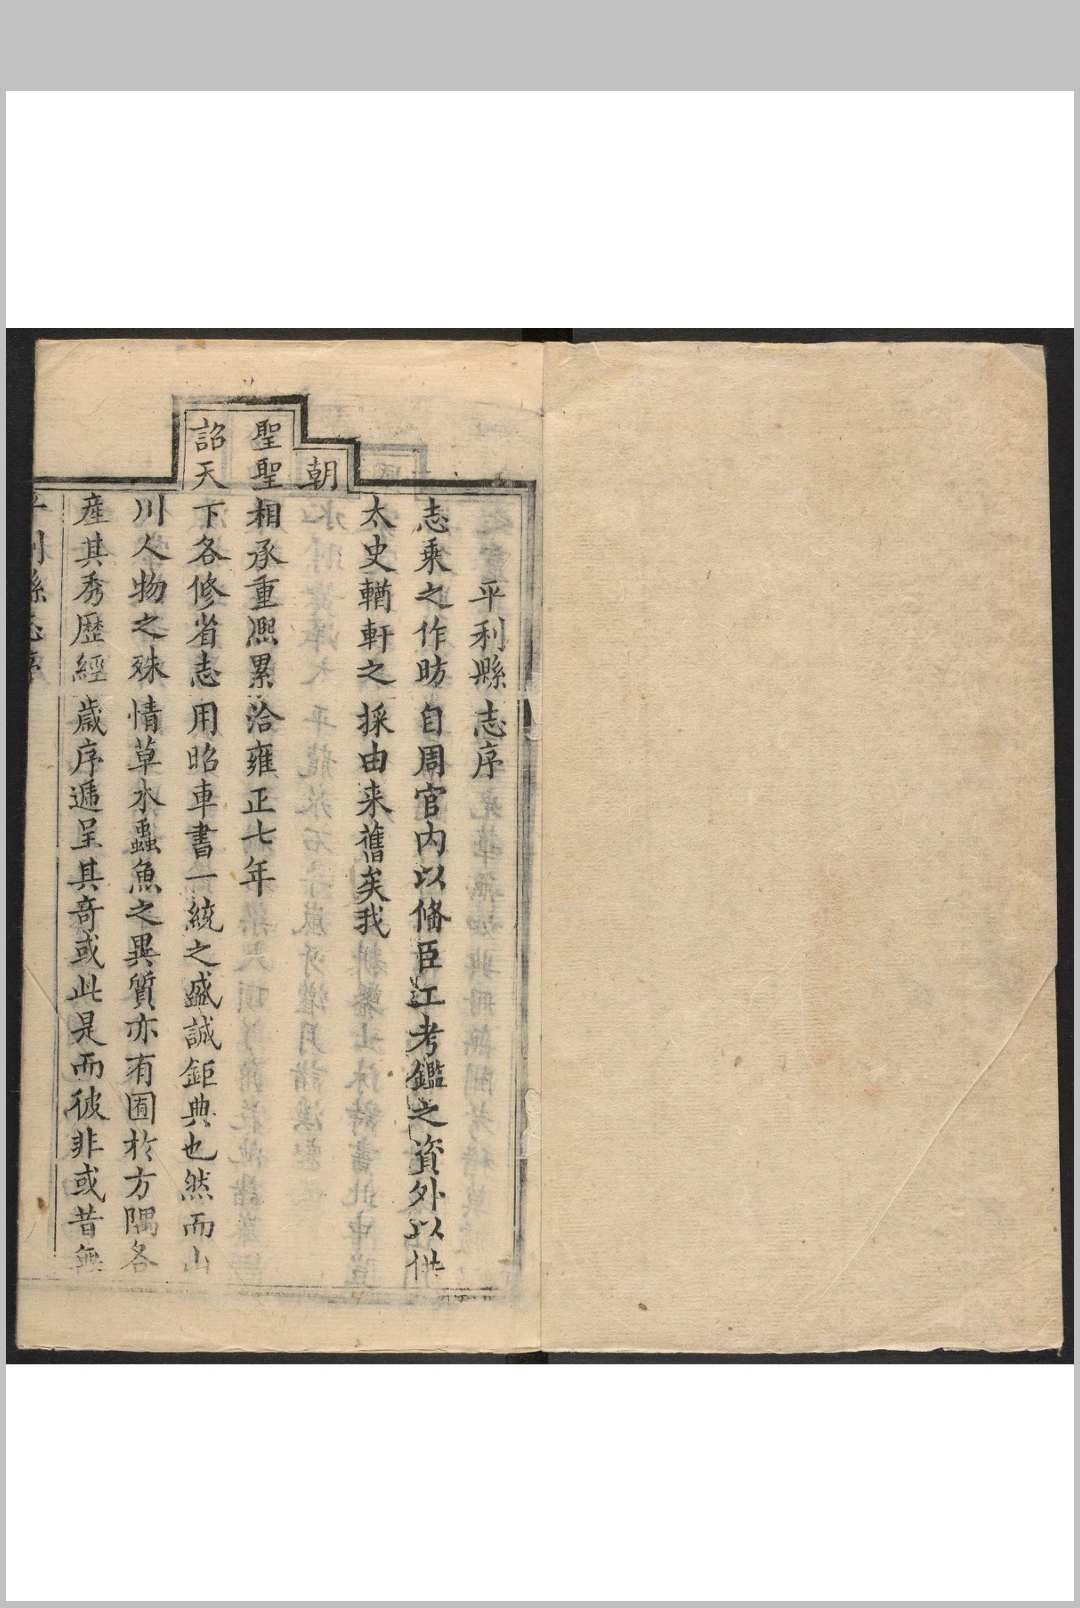 平利縣志序
志乘之作昉自周官內以俻臣工考鑑之資外以供
太史輶軒之採由来舊矣我
朝
聖聖相承重凞累洽雍正七年
詔天下各修省志用昭車書一統之盛誠鉅典也然而山
川人物之殊情草木蟲魚之異質亦有囿於方隅各
產其秀歷經歲序遞呈其奇或此是而彼非或昔無
平利縣志序